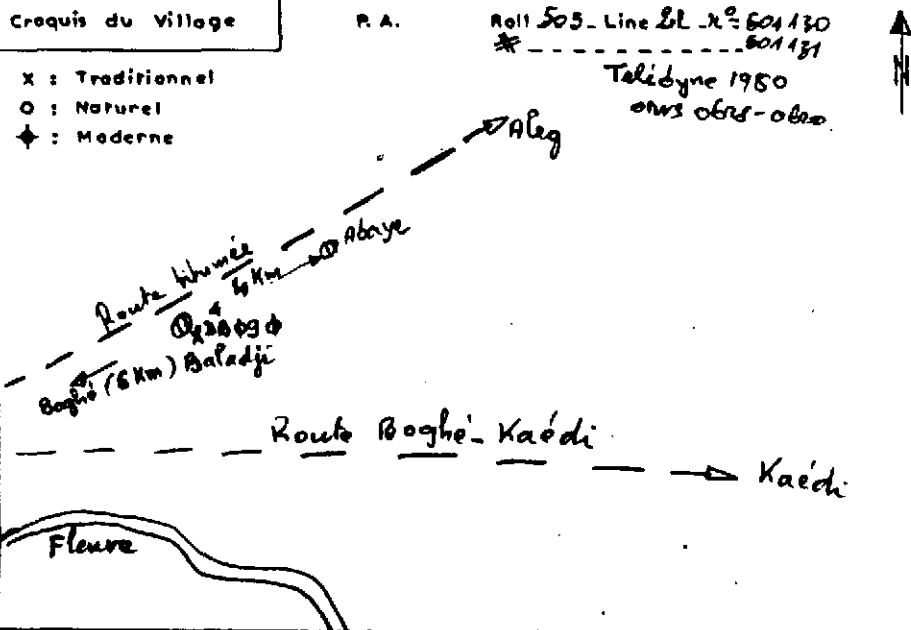 Croquis du Village
P. A.
Roll 503 - Line 2L - Nº = 601130
601131
Télédyne 1980
x : Traditionnel
o : Naturel
: Moderne
N
Aleg
Abaye
4 Km
Route bitumée
Baladji
Boghé (6 Km)
Route Boghé - Kaédi
Kaédi
Fleuve